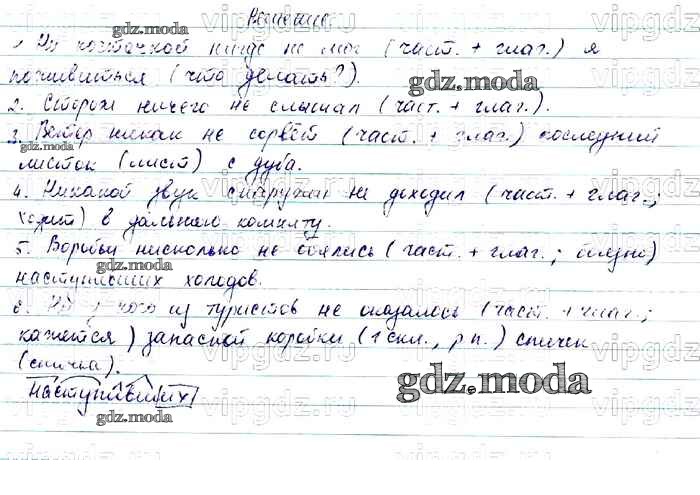 Решение.
1. Ни косточкой нигде не мог (част. + глаг.) я
поживиться (что делать?).
2. Сторож ничего не слышал (част. + глаг.).
3. Ветер никак не сорвёт (част. + глаг.) последний
листок (лист) с дуба.
4. Никакой звук снаружи не доходил (част. + глаг.;
ходит) в дальнюю комнату.
5. Воробьи нисколько не боялись (част. + глаг.;
наступивших холодов.
6. Ни у кого из туристов не оказалось (част. + глаг.;
кажется) запасной коробки (1 скл., р.п.) спичек
(спичка).
наступивших
gdz.moda
vipgdz.ru